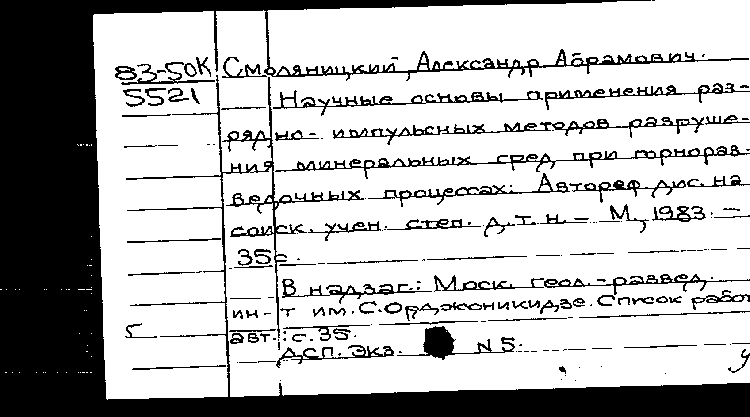 83-50К Смоляницкий, Александр Абрамович.
5521 Научные основы применения раз-
рядно-импульсных методов разруше-
ния минеральных сред при горнораз-
ведочных процессах: Автореф. дис. на
соиск. учен. степ. д.т.н. - М., 1983. -
35с.
В надзаг.: Моск. геол.-развед.
ин-т им. С. Орджоникидзе. Список работ
5 авт.: с. 35.
ДСП. Экз. N 5.
у